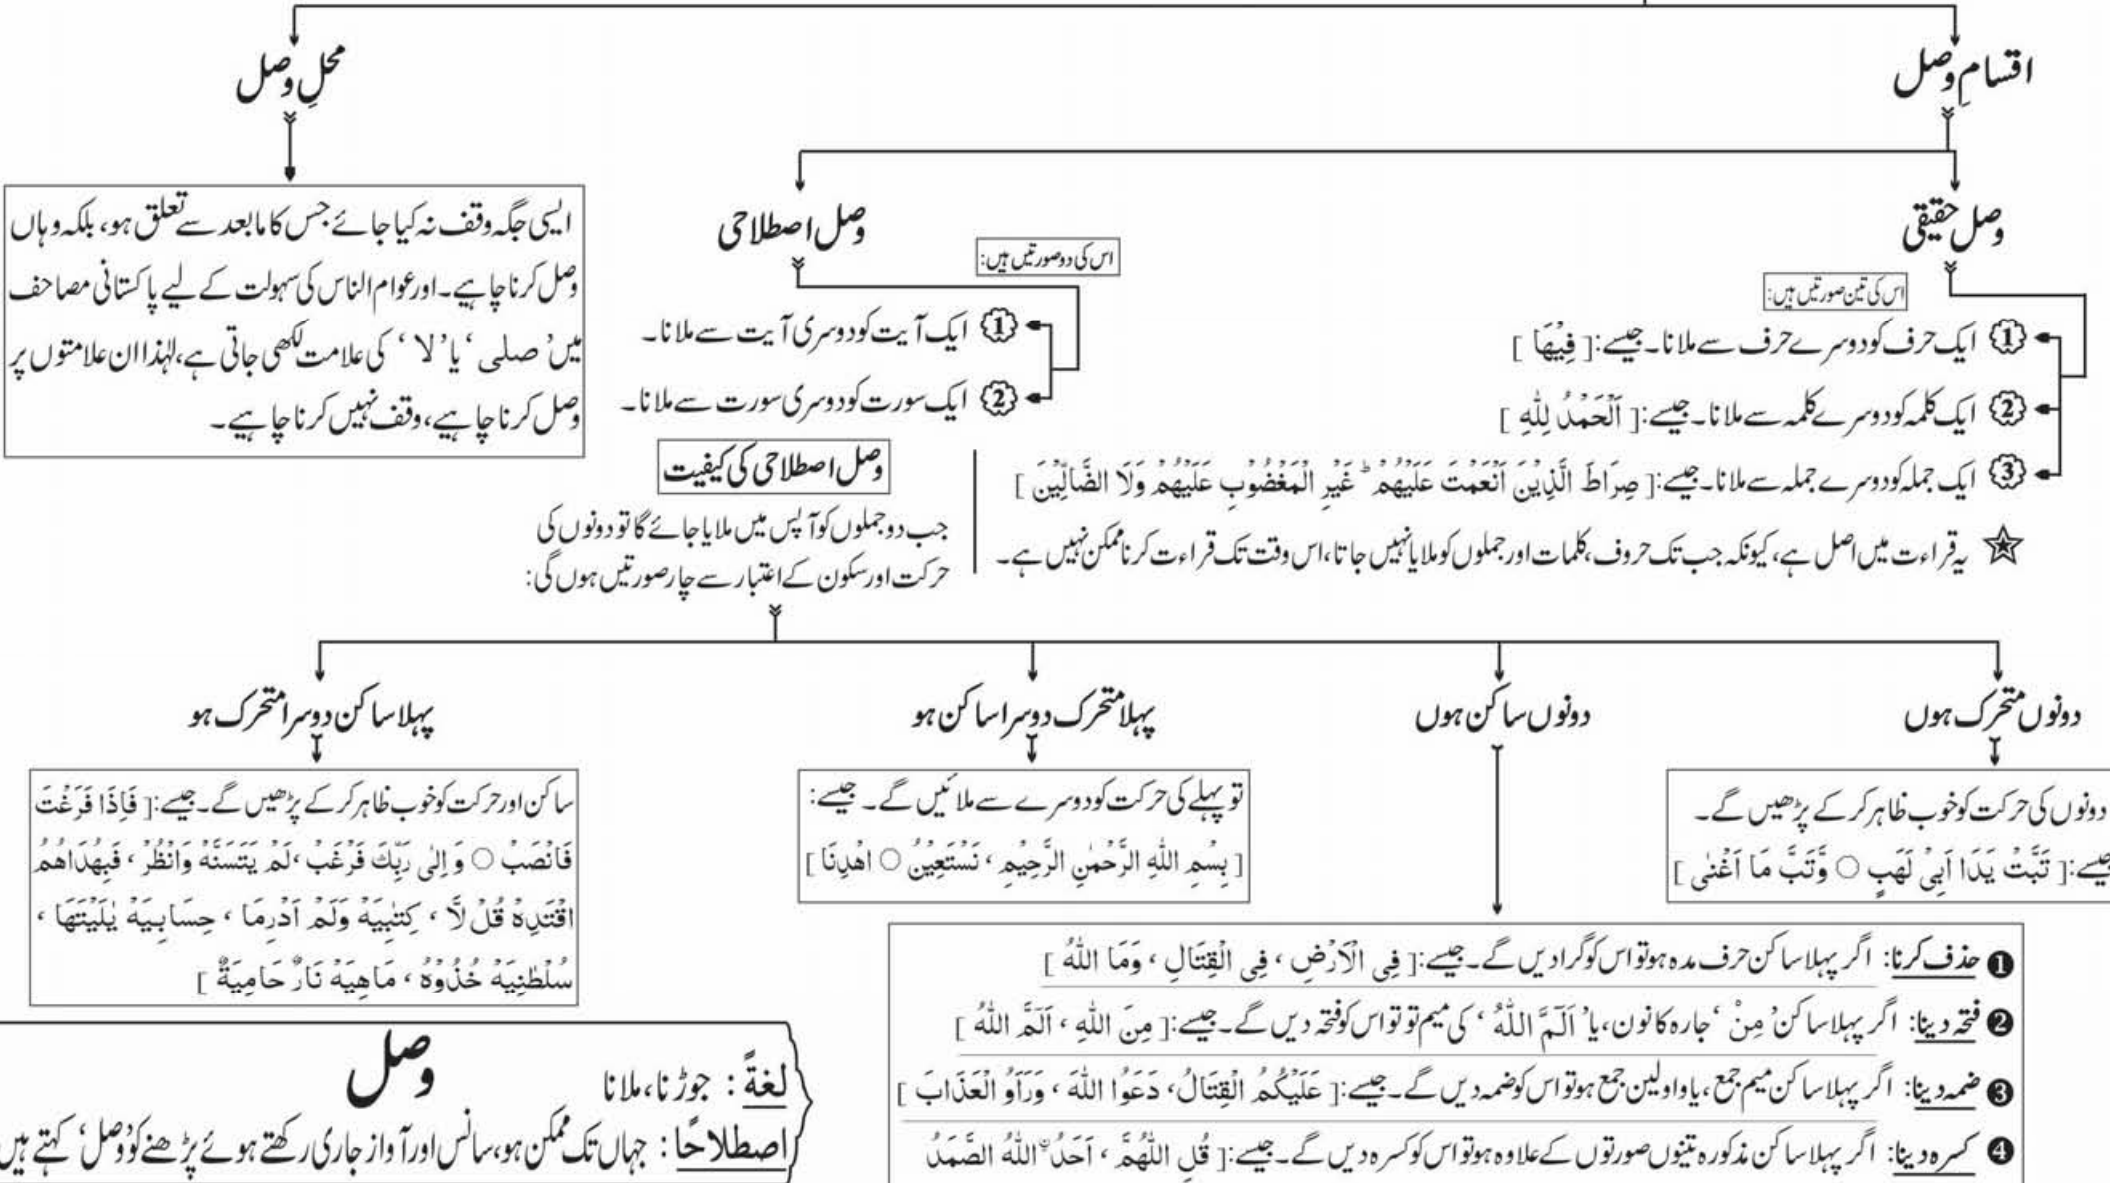 اقسامِ وصل
محلِ وصل
وصل حقیقی
اس کی تین صورتیں ہیں:
① ایک حرف کو دوسرے حرف سے ملانا۔ جیسے: [ فِيْهَا ]
② ایک کلمہ کو دوسرے کلمہ سے ملانا۔ جیسے: [ اَلْحَمْدُ لِلّٰهِ ]
③ ایک جملہ کو دوسرے جملہ سے ملانا۔ جیسے: [ صِرَاطَ الَّذِيْنَ اَنْعَمْتَ عَلَيْهِمْ ۬ۙ غَيْرِ الْمَغْضُوْبِ عَلَيْهِمْ وَلَا الضَّآلِّيْنَ ]
☆ یہ قراءت میں اصل ہے، کیونکہ جب تک حروف، کلمات اور جملوں کو ملایا نہیں جاتا، اس وقت تک قراءت کرنا ممکن نہیں ہے۔
وصل اصطلاحی
اس کی دو صورتیں ہیں:
① ایک آیت کو دوسری آیت سے ملانا۔
② ایک سورت کو دوسری سورت سے ملانا۔
وصل اصطلاحی کی کیفیت
جب دو جملوں کو آپس میں ملایا جائے گا تو دونوں کی
حرکت اور سکون کے اعتبار سے چار صورتیں ہوں گی:
ایسی جگہ وقف نہ کیا جائے جس کا مابعد سے تعلق ہو، بلکہ وہاں
وصل کرنا چاہیے۔ اور عوام الناس کی سہولت کے لیے پاکستانی مصاحف
میں ’صلی‘ یا ’لا‘ کی علامت لکھی جاتی ہے، لہٰذا ان علامتوں پر
وصل کرنا چاہیے، وقف نہیں کرنا چاہیے۔
دونوں متحرک ہوں
دونوں کی حرکت کو خوب ظاہر کر کے پڑھیں گے۔
جیسے: [ تَبَّتْ يَدَا اَبِيْ لَهَبٍ ○ وَّتَبَّ مَا اَغْنٰى ]
دونوں ساکن ہوں
❶ حذف کرنا: اگر پہلا ساکن حرف مدہ ہو تو اس کو گرا دیں گے۔ جیسے: [ فِي الْاَرْضِ ، فِي الْقِتَالِ ، وَمَا اللّٰهُ ]
❷ فتحہ دینا: اگر پہلا ساکن ’مِنْ‘ جارہ کا نون، یا ’الٓمَّ اللّٰهُ‘ کی میم تو تو اس کو فتحہ دیں گے۔ جیسے: [ مِنَ اللّٰهِ ، الٓمَّ اللّٰهُ ]
❸ ضمہ دینا: اگر پہلا ساکن میم جمع، یا واو لین جمع ہو تو اس کو ضمہ دیں گے۔ جیسے: [ عَلَيْكُمُ الْقِتَالُ، دَعَوُا اللّٰهَ ، وَرَاَوُ الْعَذَابَ ]
❹ کسرہ دینا: اگر پہلا ساکن مذکورہ تینوں صورتوں کے علاوہ ہو تو اس کو کسرہ دیں گے۔ جیسے: [ قُلِ اللّٰهُمَّ ، اَحَدُ ۨ اللّٰهُ الصَّمَدُ
پہلا متحرک دوسرا ساکن ہو
تو پہلے کی حرکت کو دوسرے سے ملائیں گے۔ جیسے:
[ بِسْمِ اللّٰهِ الرَّحْمٰنِ الرَّحِيْمِ ، نَسْتَعِيْنُ ○ اهْدِنَا ]
پہلا ساکن دوسرا متحرک ہو
ساکن اور حرکت کو خوب ظاہر کر کے پڑھیں گے۔ جیسے: [ فَاِذَا فَرَغْتَ
فَانْصَبْ ○ وَ اِلٰى رَبِّكَ فَرْغَبْ ،لَمْ يَتَسَنَّهْ وَانْظُرْ ، فَبِهُدَاهُمُ
اقْتَدِهْ قُلْ لَّا ، كِتٰبِيَهْ وَلَمْ اَدْرِمَا ، حِسَابِيَهْ يٰلَيْتَهَا ،
سُلْطٰنِيَهْ خُذُوْهُ ، مَاهِيَهْ نَارٌ حَامِيَةٌ ]
وصل
لغةً : جوڑنا، ملانا
اصطلاحًا : جہاں تک ممکن ہو، سانس اور آواز جاری رکھتے ہوئے پڑھنے کو ’وصل‘ کہتے ہیں